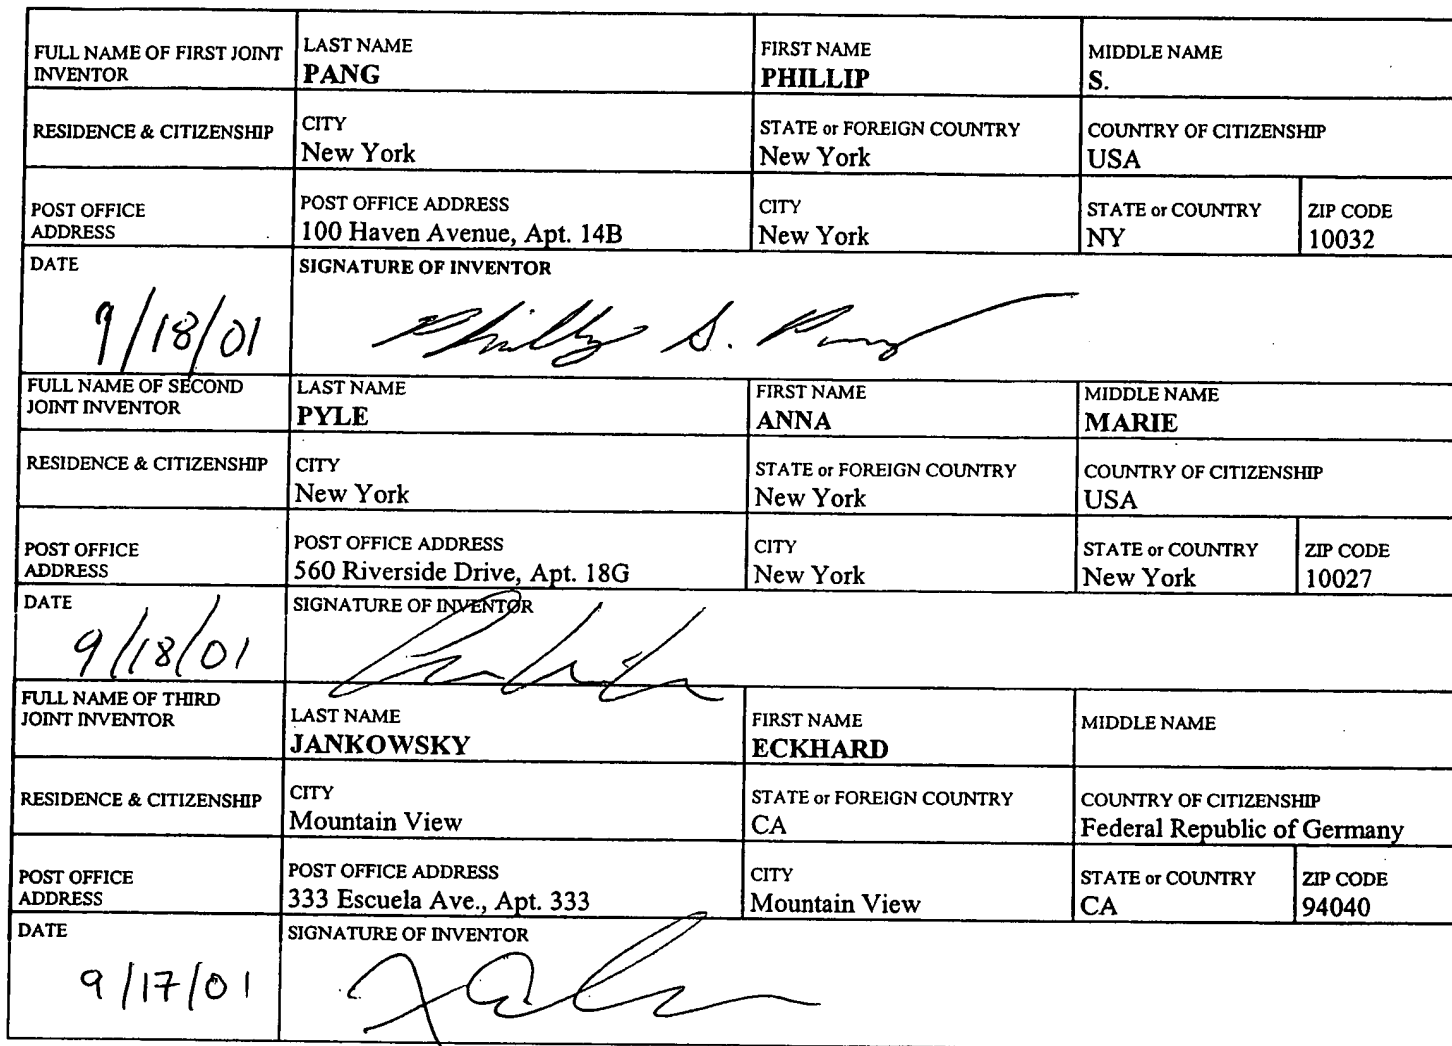 FULL NAME OF FIRST JOINT INVENTOR
LAST NAME
PANG
FIRST NAME
PHILLIP
MIDDLE NAME
S.
RESIDENCE & CITIZENSHIP
CITY
New York
STATE or FOREIGN COUNTRY
New York
COUNTRY OF CITIZENSHIP
USA
POST OFFICE
ADDRESS
POST OFFICE ADDRESS
100 Haven Avenue, Apt. 14B
CITY
New York
STATE or COUNTRY
NY
ZIP CODE
10032
DATE
9/18/01
SIGNATURE OF INVENTOR
Phillip S. Pang
FULL NAME OF SECOND
JOINT INVENTOR
LAST NAME
PYLE
FIRST NAME
ANNA
MIDDLE NAME
MARIE
RESIDENCE & CITIZENSHIP
CITY
New York
STATE or FOREIGN COUNTRY
New York
COUNTRY OF CITIZENSHIP
USA
POST OFFICE
ADDRESS
POST OFFICE ADDRESS
560 Riverside Drive, Apt. 18G
CITY
New York
STATE or COUNTRY
New York
ZIP CODE
10027
DATE
9/18/01
SIGNATURE OF INVENTOR
FULL NAME OF THIRD
JOINT INVENTOR
LAST NAME
JANKOWSKY
FIRST NAME
ECKHARD
MIDDLE NAME
RESIDENCE & CITIZENSHIP
CITY
Mountain View
STATE or FOREIGN COUNTRY
CA
COUNTRY OF CITIZENSHIP
Federal Republic of Germany
POST OFFICE
ADDRESS
POST OFFICE ADDRESS
333 Escuela Ave., Apt. 333
CITY
Mountain View
STATE or COUNTRY
CA
ZIP CODE
94040
DATE
9/17/01
SIGNATURE OF INVENTOR